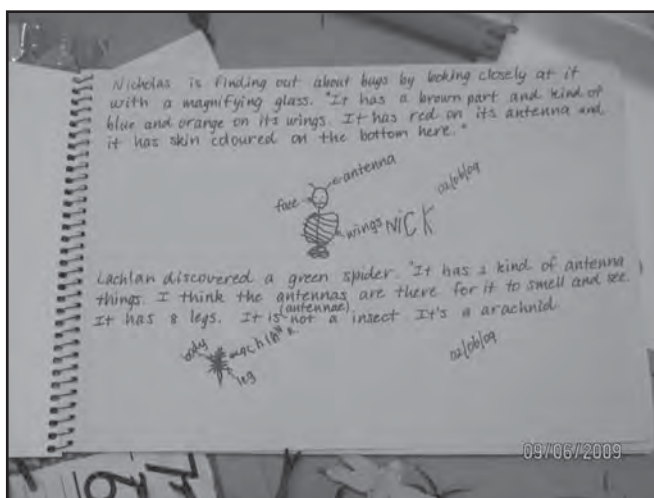 Nicholas is finding out about bugs by looking closely at it
with a magnifying glass. "It has a brown part and kind of
blue and orange on its wings. It has red on its antenna and
it has skin coloured on the bottom here."
antenna
face
02/06/09
wings NiCK
Lachlan discovered a green spider. "It has 2 kind of antenna
things. I think the antennas are there for it to smell and see.
(antennae)
It has 8 legs. It is not a insect It's a arachnid
body
leg
02/06/09
09/06/2009